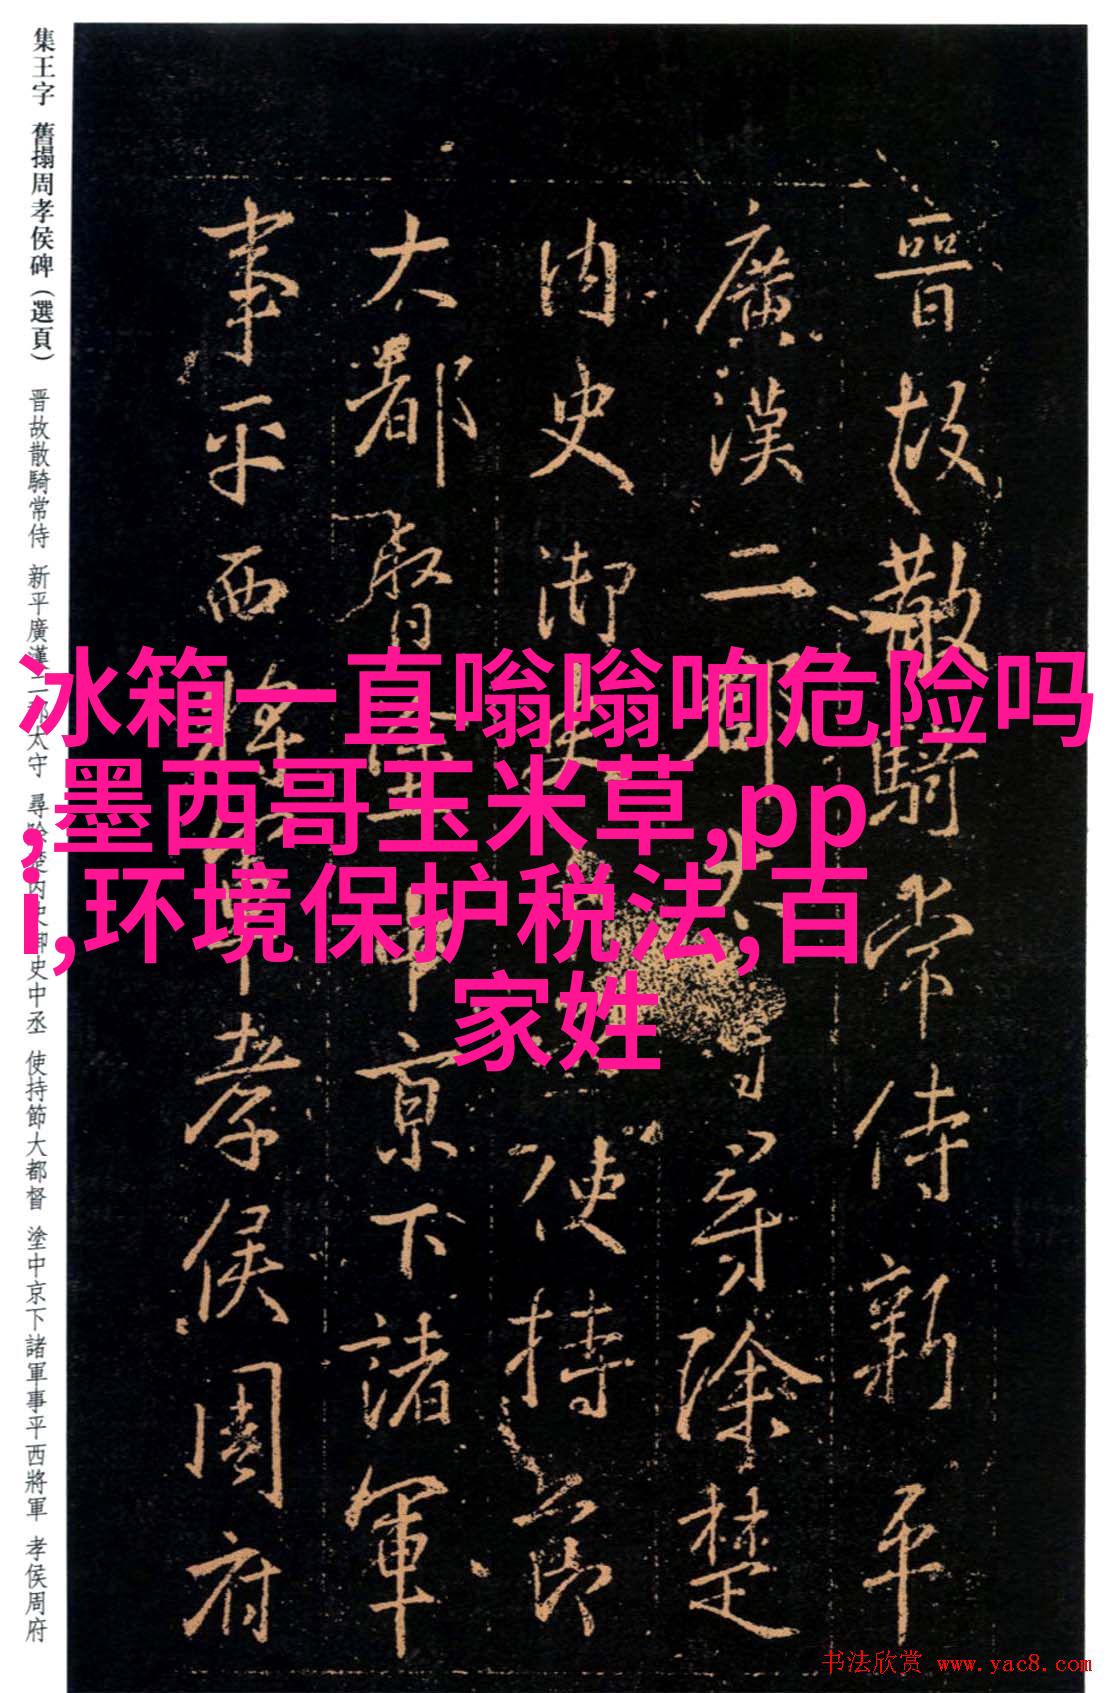 集王字 舊搨周孝侯碑（選頁） 晋故散騎常侍 新平廣漢二郡太守 尋除楚内史御史中丞 使持節大都督 塗中京下諸軍事平西將軍 孝侯周府
晉故散騎常侍新平
廣漢二郡太守尋除楚
内史御史中丞使持節
大都督塗中京下諸軍
事平西將軍孝侯周府
冰箱一直嗡嗡响危险吗
,墨西哥玉米草,pp
i,环境保护税法,百
家姓
书法欣赏 www.yac8.com